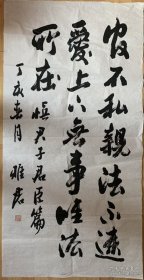 官不私親法不遺
愛上下無事唯法
所在 慎子君臣篇
丁亥春月 雅